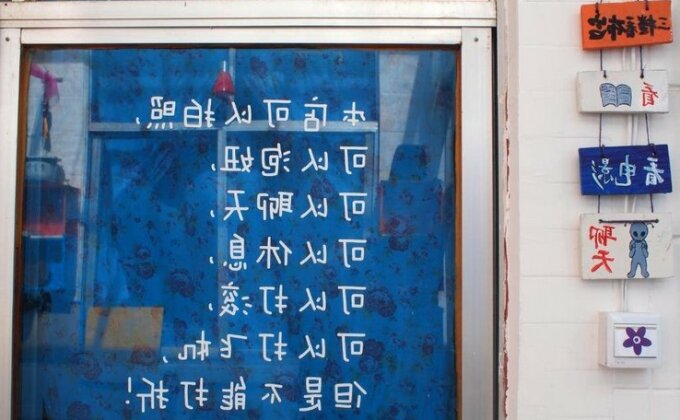 本店可以拍照,
可以泡妞,
可以聊天,
可以休息,
可以打滚,
可以打飞机,
但是不能打折!
三楼看布宫
看
看电影
聊天